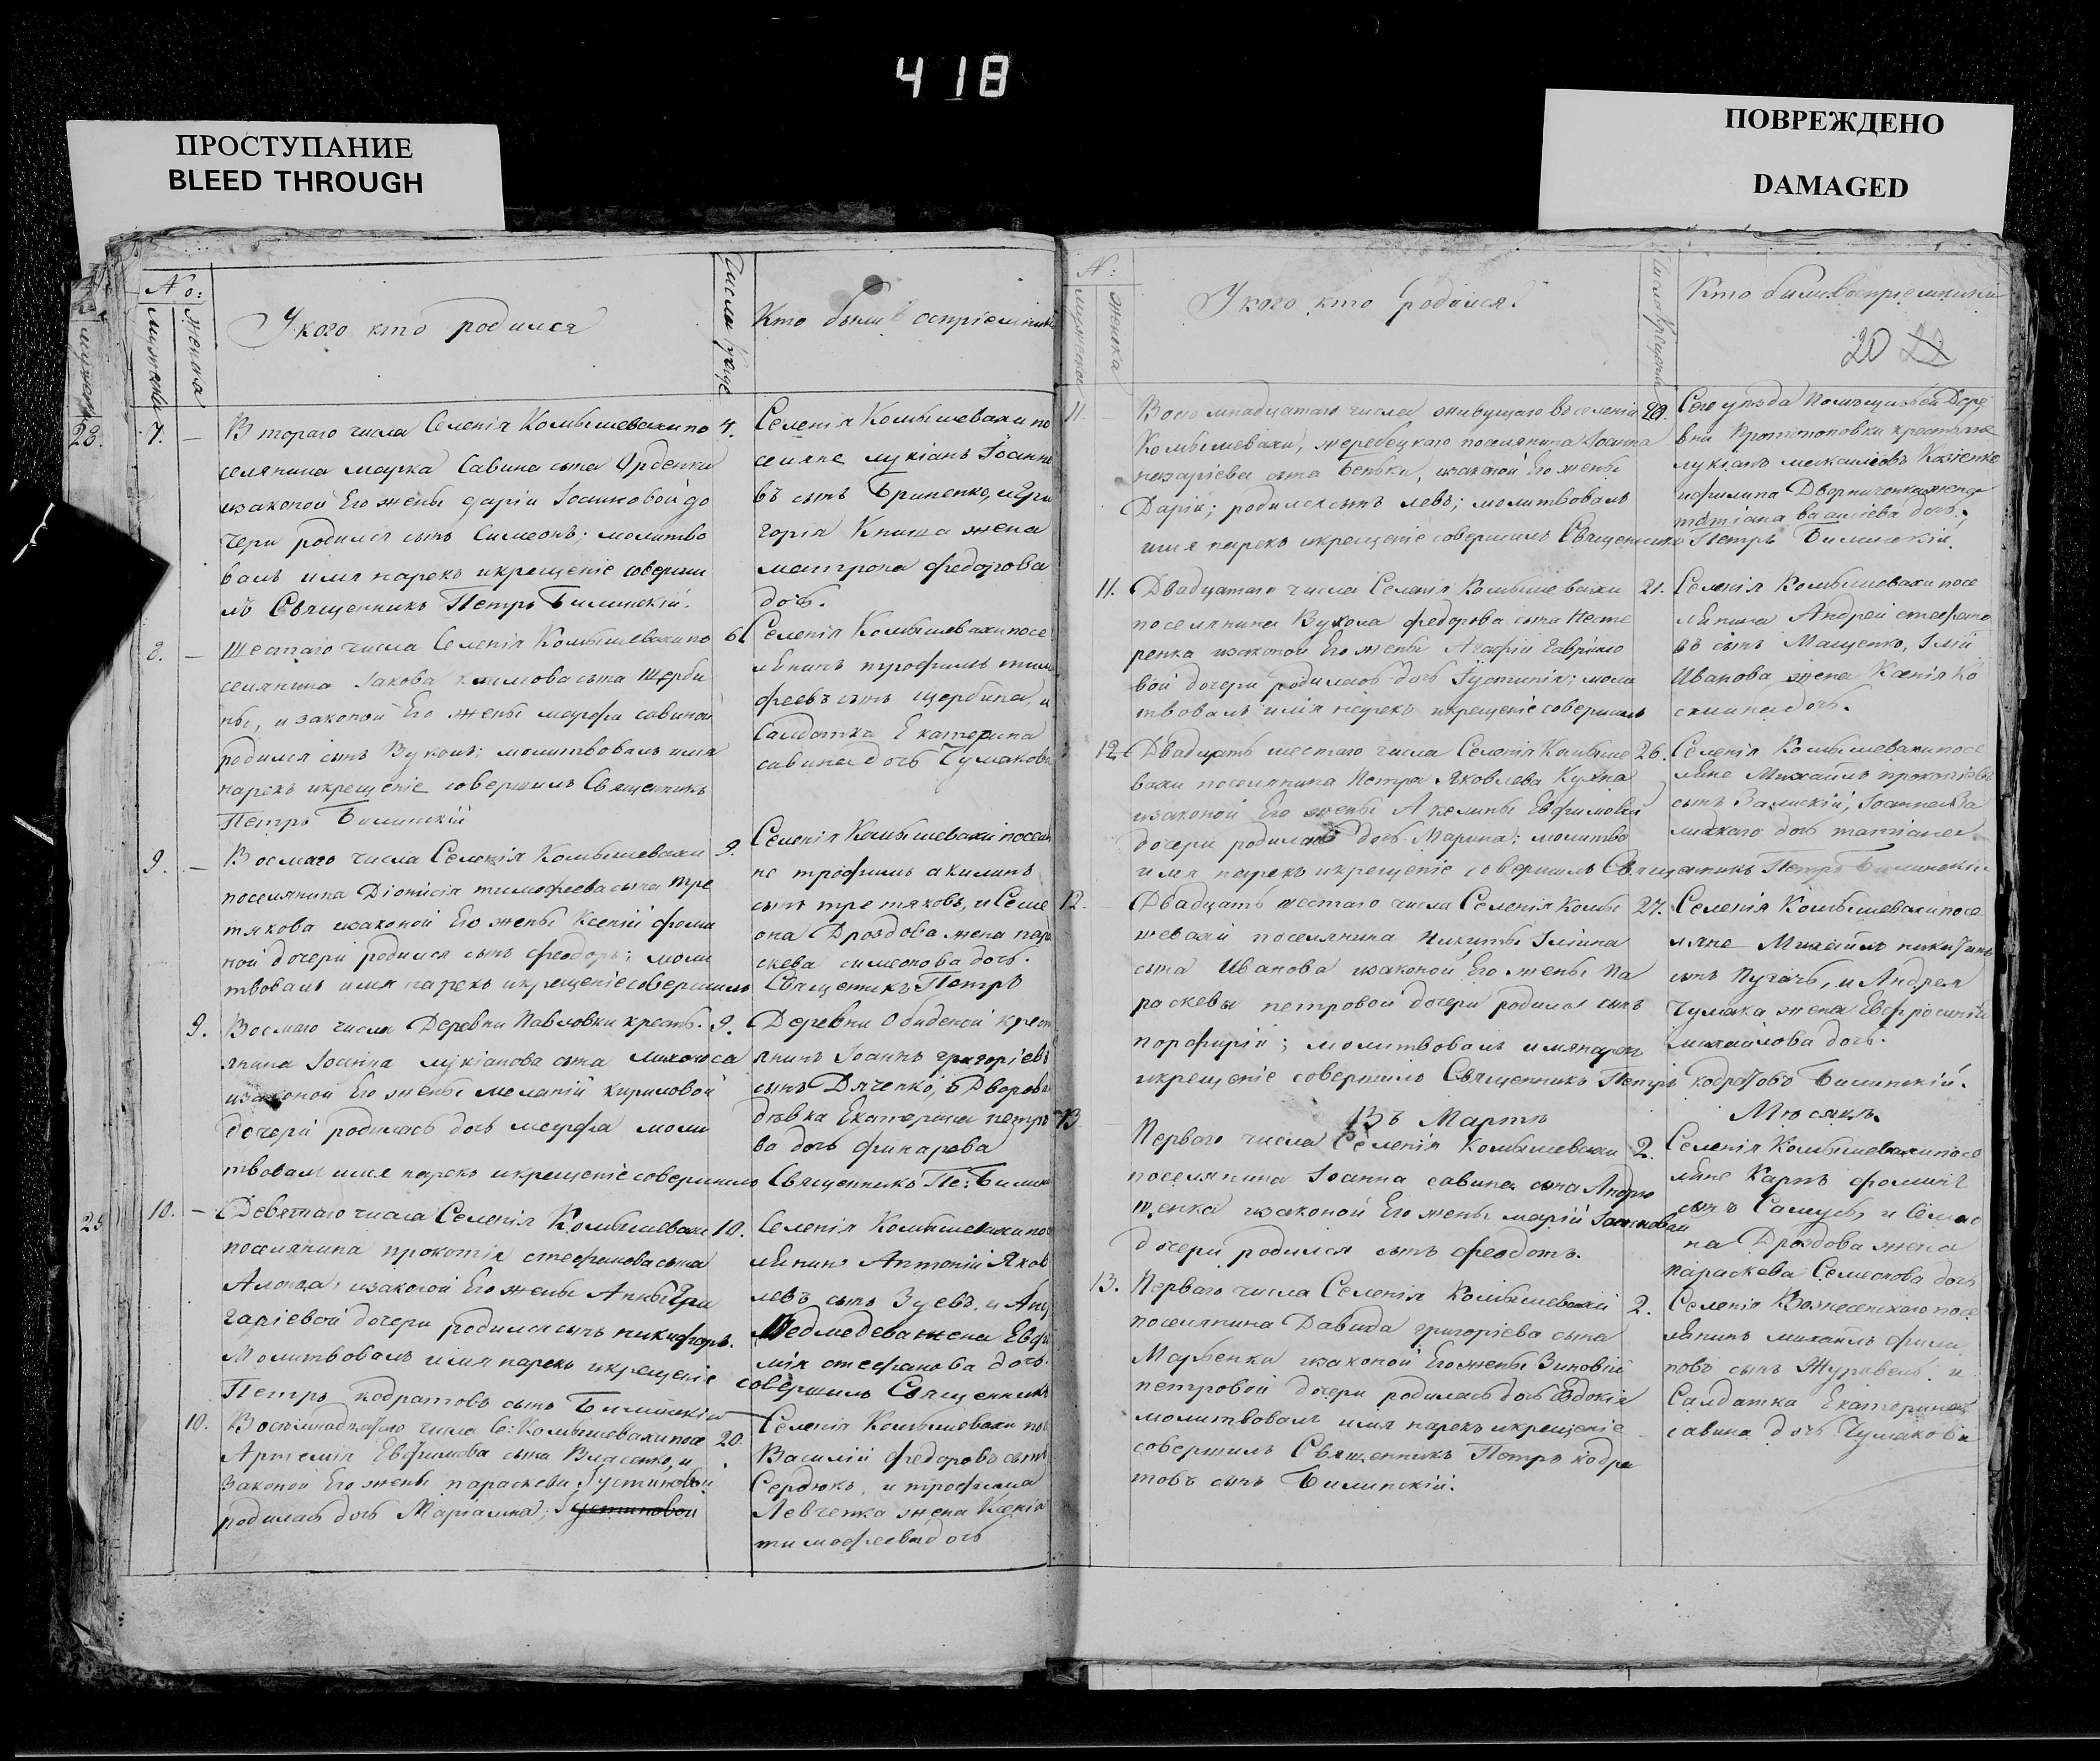 418
ПРОСТУПАНИЕ
BLEED THROUGH
ПОВРЕЖДЕНО
DAMAGED
No:
мужска
женска
У кого кто родился
Числа
Кто были воспріемники
23.
7. —
Втораго числа Селенія Комышевахи по
селянина марка Савина сына
изаконой Его жены даріи Іоанновой до
чери родился сынъ Симеонъ; молитво
валъ имя нарекъ икрещеніе соверши
лъ Священникъ Петръ Билинскій.
4.
Селенія Комышевахи по
селяне лукіанъ Іоанно
въ сынъ Гриненко, и Гри
горія Книша жена
матрона федорова
дочь.
8. —
Шестаго числа Селенія Комышевахи по
селянина Іакова климова сына Щерби
ны, и законой Его жены марфы савиной
родился сынъ Вуколъ; молитвовалъ имя
нарекъ икрещеніе совершилъ Священникъ
Петръ Билинскій
6
Селенія Комышевахи посе
лянинъ трофимъ тимо
феевъ сынъ щербина, и
Салдатка Екатерина
савина дочь Чумакова
9. —
Восмаго числа Селенія Комышевахи
поселянина Діонисія тимофеева сына тре
тякова изаконой Его жены Ксеніи фоми
ной дочери родился сынъ феодоръ; моли
твовалъ имя нарекъ икрещеніе совершилъ
9.
Селенія Комышевахи поселя
не трофимъ акилинъ
сынъ третяковъ, и Симе
она Дроздова жена пара
скева симеонова дочь.
Священникъ Петръ
9.
Восмаго числа Деревни Павловки кресть
янина Іоанна лукіанова сына
изаконой Его жены меланіи кириловой
дочери родилась дочь марфа моли
твовалъ имя нарекъ икрещеніе совершилъ
9.
Деревни Обиденой крест
янинъ Іоаннъ григоріевъ
сынъ Дяченко, и Дворова
дѣвка Екатерина петро
ва дочь финарова
Священникъ Пе: Билинс
25
10. —
Девятаго числа Селенія Комышевахи
поселянина прокопія стефанова сына
изаконой Его жены Анны Гри
горіевой дочери родился сынъ никифоръ.
Молитвовалъ имя нарекъ икрещеніе
Петръ кодратовъ сынъ Билинскій
10.
Селенія Комышевахи посе
лянинъ Антоній Яков
левъ сынъ Зуевъ, и Анд
Медмедева жена Евфи
мія стефанова дочь.
совершилъ Священникъ
10.
Восемнадцатаго числа С: Комышевахи посе
Артемія Евфимова сына Власенко, и
Законой Его жены параскевы Іустиновой
родилась дочь Маріамна; Іустиновой
20.
Селенія Комышевахи по
Василій федоровъ сынъ
Сердюкъ, и трофима
Левченка жена Ксенія
тимофеева дочь
N:
мужска
женска
У кого кто родился.
Кто были воспріемники
20 22
11.
Восемнадцатаго числа живущаго въ селеніи
Комышевахи, жеребецкаго поселянина Іоанна
назаріева сына Бенька, изаконой Его жены
Даріи; родился сынъ левъ; молитвовалъ
имя нарекъ икрещеніе совершилъ Священникъ Петръ Билинскій.
20.
Сего уѣзда Помѣщичьей Дере
вни Протопоповки крестьяне
лукіанъ михаиловъ Козіенко
ифилипа Дворниченки жена
татіана василіева дочь.
11.
Двадцатаго числа Селенія Комышевахи
поселянина Вукола федорова сына Несте
ренка изаконой Его жены Агафіи Гаврило
вой дочери родилась дочь Іустинія; моли
твовалъ имя нарекъ икрещеніе совершилъ
21.
Селенія Комышевахи посе
лянинъ Андрей стефано
въ сынъ Мащенко, Іліи
Иванова жена Ксенія Ко
смина дочь.
12
Двадцать шестаго числа Селенія Комыше
вахи поселянина Петра Яковлева Кухна
изаконой Его жены Акелины Евфимовой
дочери родилась дочь Марина; молитво
имя нарекъ икрещеніе совершилъ Священникъ Петръ Билинскій
26.
Селенія Комышевахи посе
ляне Михаилъ прокопіевъ
сынъ Залискій, Іоанна За
лискаго дочь татіана.
12.
Двадцать шестаго числа Селенія Комы
шевахи поселянина Никиты Іліина
сына Иванова изаконой Его жены Па
раскевы петровой дочери родился сынъ
порфирій; молитвовалъ имянарекъ
икрещеніе совершилъ Священникъ Петръ кодратовъ Билинскій.
27.
Селенія Комышевахи посе
ляне Михаилъ никитинъ
сынъ Пугачь, и Андрея
Чумака жена Евфросинія
михаилова дочь.
Въ Мартѣ
Мѣсяцѣ
13
Перваго числа Селенія Комышевахи
поселянина Іоанна савина сына Андрю
щенка изаконой Его жены маріи Іоанновой
дочери родился сынъ феодотъ.
2.
Селенія Комышевахи посе
ляне Карпъ фомичъ
сынъ Самусь, и Симео
на Дроздова жена
параскева Семеонова дочь
13.
Перваго числа Селенія Комышевахи
поселянина Давида григоріева сына
Марченки изаконой Его жены Зиновіи
петровой дочери родилась дочь Евдокія
молитвовалъ имя нарекъ икрещеніе
совершилъ Священникъ Петръ кодра
товъ сынъ Билинскій.
2.
Селенія Вознесенскаго посе
лянинъ михаилъ фили
повъ сынъ Журавель, и
Салдатка Екатерина
савина дочь Чумакова